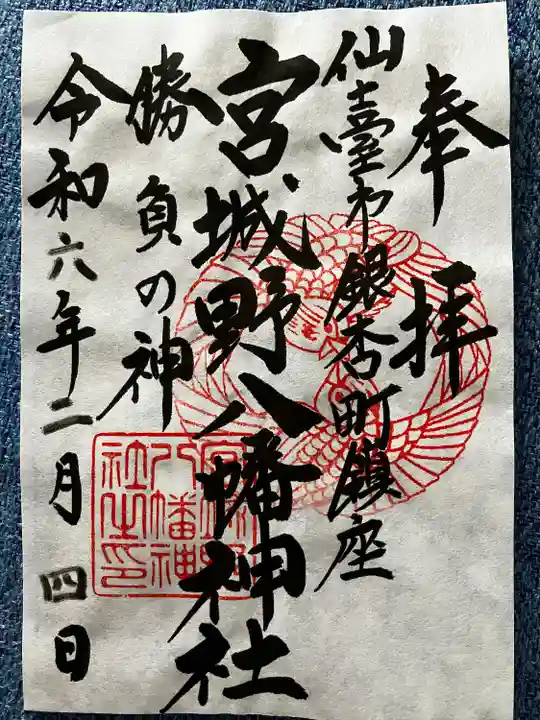 奉拝
仙臺市銀杏町鎮座
宮城野八幡神社
勝負の神
令和六年二月四日
宮城野
八幡神
社之印